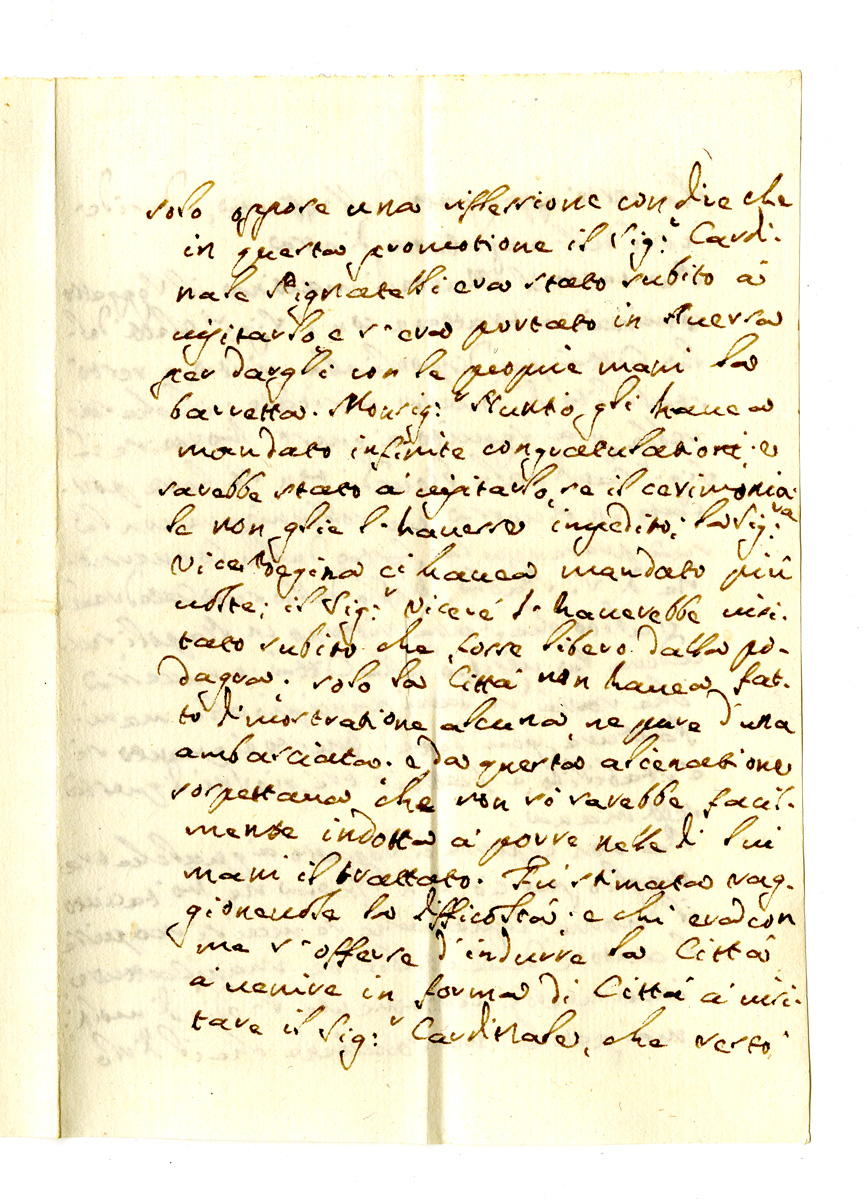 solo oppose una riflessione con dire che
in questa promotione il Sig.r Cardi-
nale Pignatelli era stato subito à
visitarlo, e s'era portato in Auersa
per dargli con le proprie mani la
barretta. Monsig.r Nuntio gli hauea
mandato infinite congratulationi, e
sarebbe stato à visitarlo, se il cerimonia-
le non glie l'hauesse impedito; la Sig.ra
ViceRegina ci hauea mandato più
uolte; il Sig.r Viceré l'hauerebbe uisi-
tato subito che fosse libero dalla po-
dagra; solo la Città non hauea fat-
to dimostratione alcuna, ne pure d'una
ambasciata. e da questa alienatione
sospettaua che non si sarebbe facil-
mente indotta à porre nelle di lui
mani il trattato. Fù stimata rag-
gioneuole la difficoltà. e chi era con
me s'offerse d'indurre la Città
à uenire in forma di Città à uisi-
tare il Sig.r Cardinale, che restò